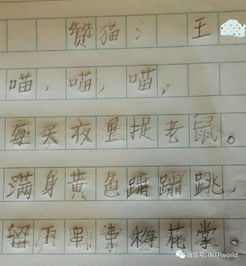 赞猫： 王
喵，喵，喵，
每天夜里捉老鼠。
满身黄色蹦蹦跳，
留下串串梅花掌。
微信号: INTPworld